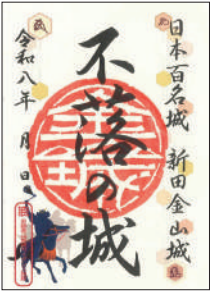 日本百名城 新田金山城
不落の城
令和八年 月 日